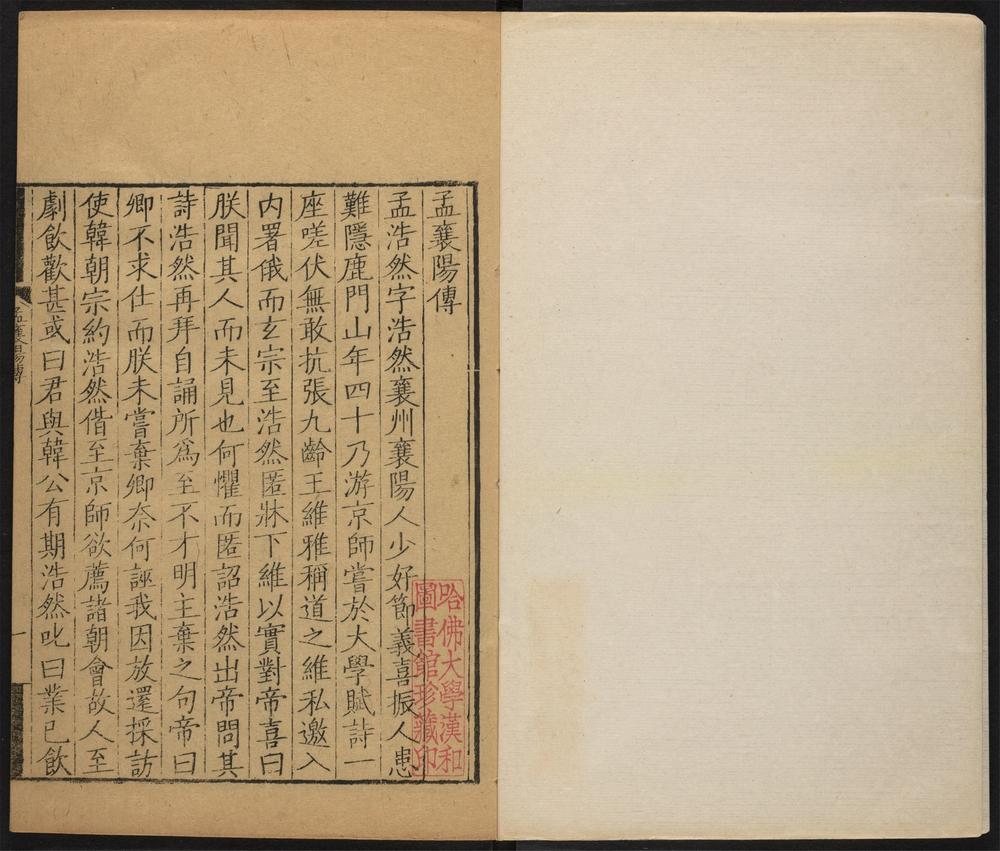 孟襄陽傳
孟浩然字浩然襄州襄陽人少好節義喜振人患
難隱鹿門山年四十乃游京師嘗於大學賦詩一
座嗟伏無敢抗張九齡王維雅稱道之維私邀入
內署俄而玄宗至浩然匿牀下維以實對帝喜曰
朕聞其人而未見也何懼而匿詔浩然出帝問其
詩浩然再拜自誦所爲至不才明主棄之句帝曰
卿不求仕而朕未嘗棄卿奈何誣我因放還採訪
使韓朝宗約浩然偕至京師欲薦諸朝會故人至
劇飲歡甚或曰君與韓公有期浩然叱曰業已飲
孟襄陽傳
一
哈佛大學漢和
圖書館珍藏印